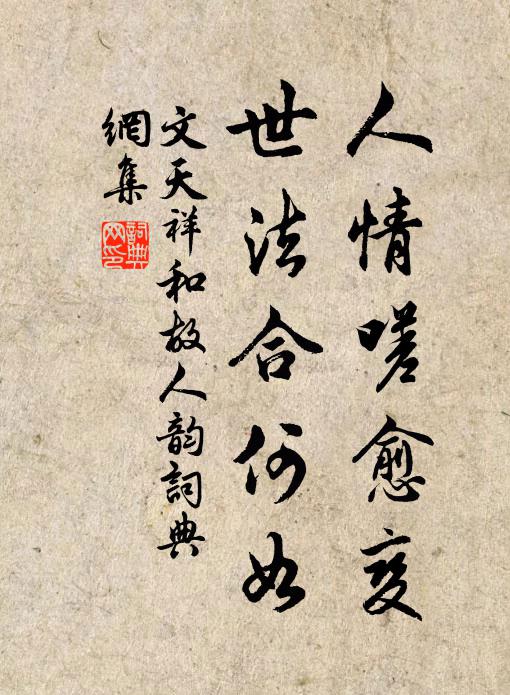 人情嗟愈变
世法合何如
文天祥和故人韵詞典
網集
詞典
网印